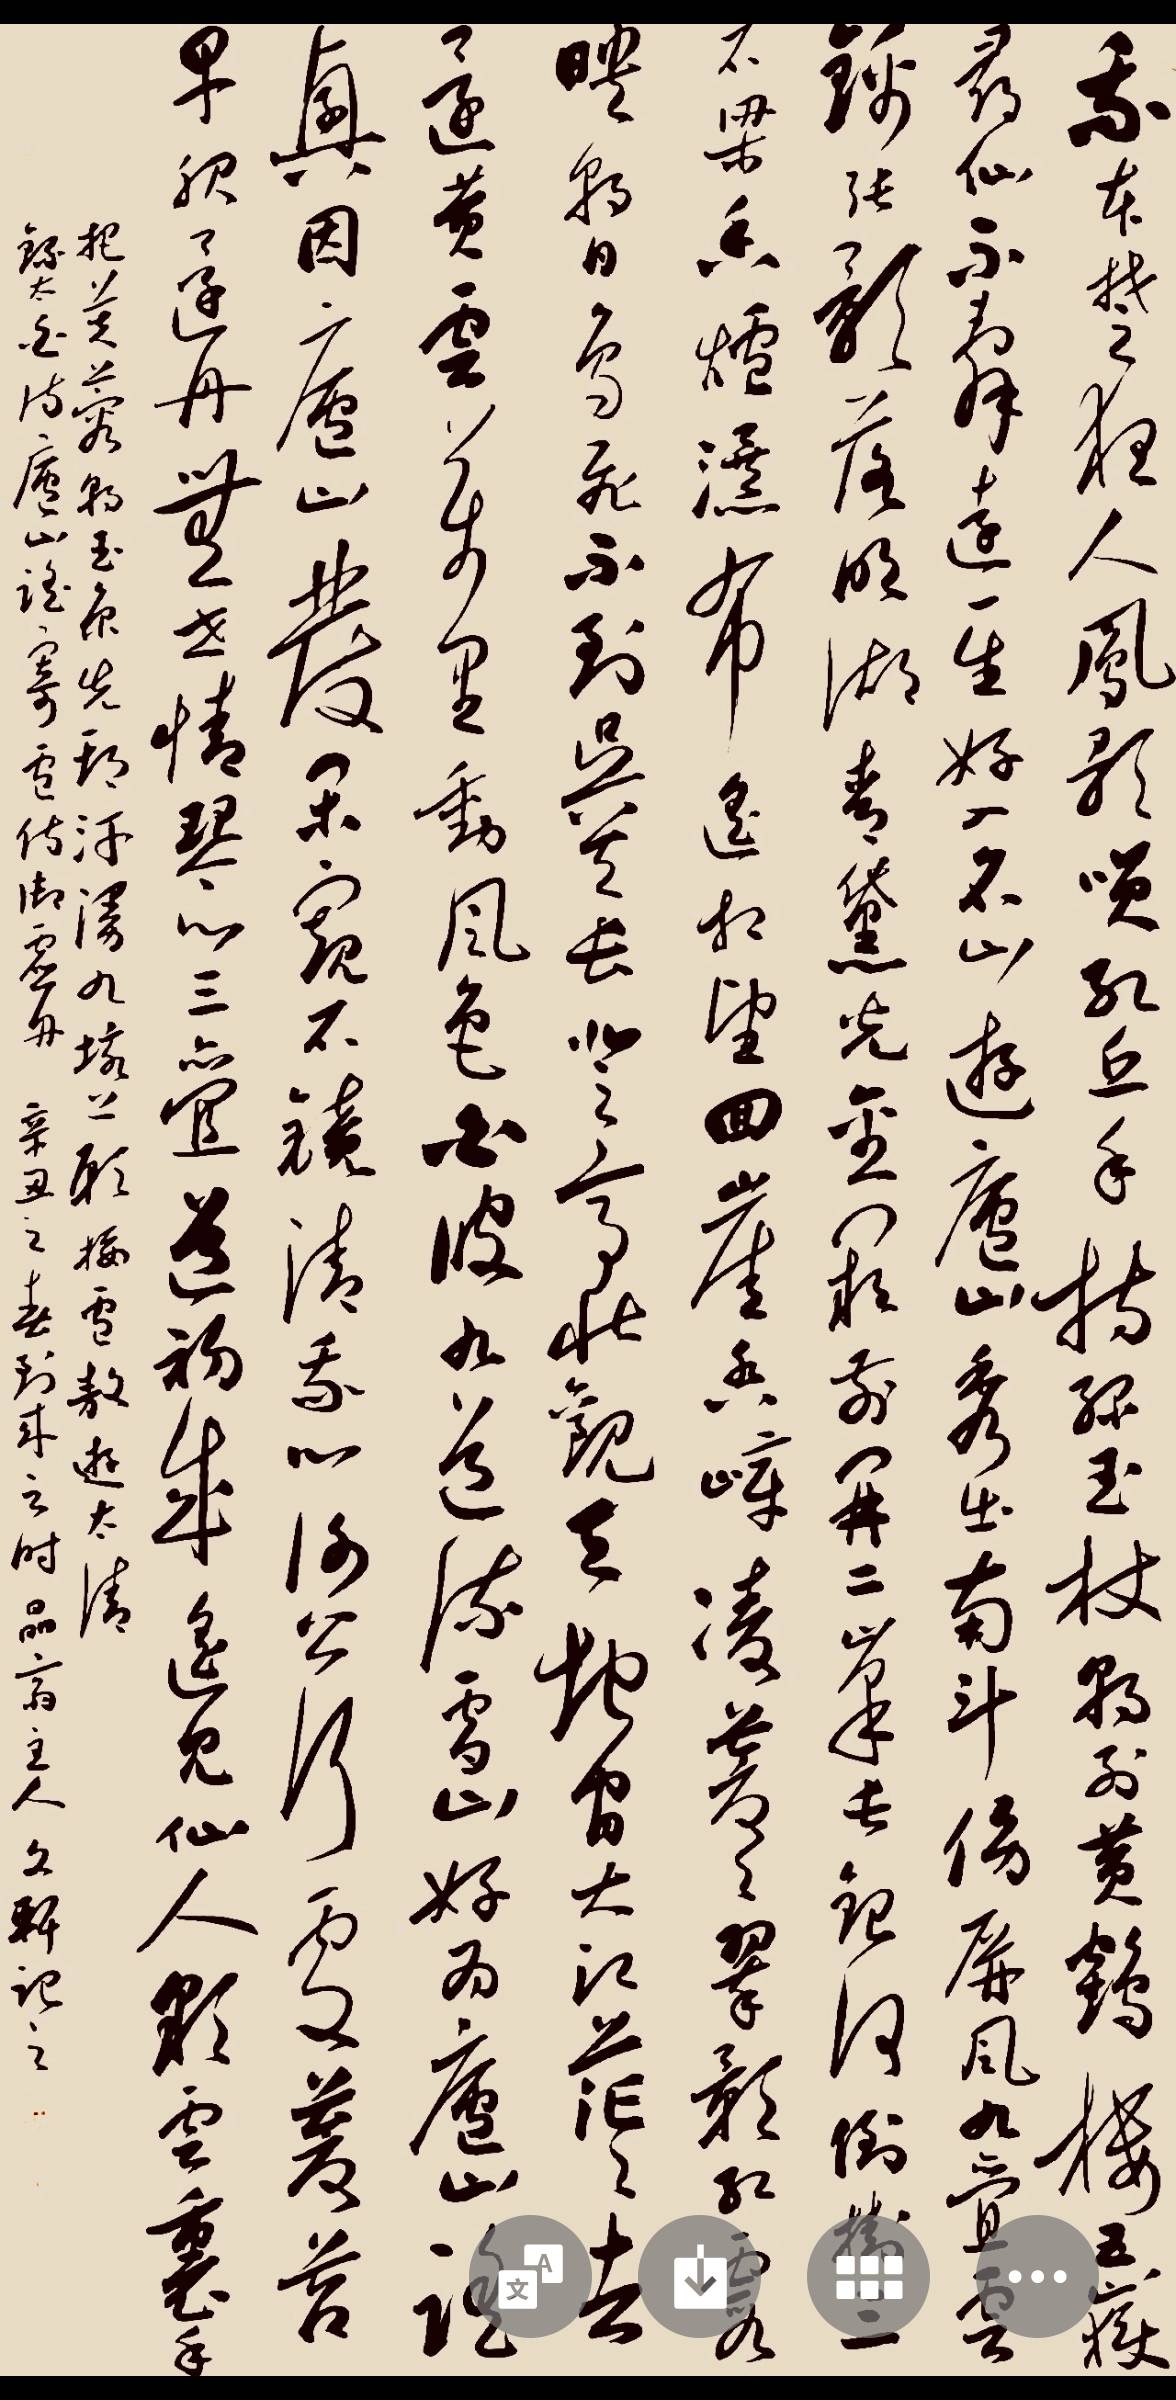 我本楚狂人鳳歌笑孔丘手持綠玉杖朝別黃鶴樓五嶽
尋仙不辭遠一生好入名山遊廬山秀出南斗傍屏風九疊雲
錦張影落明湖青黛光金闕前開二峯長銀河倒掛三
石梁香爐瀑布遙相望回崖沓嶂凌蒼蒼翠影紅霞
映朝日鳥飛不到吳天長登高壯觀天地間大江茫茫去
不還黃雲萬里動風色白波九道流雪山好為廬山謠
興因廬山發閑窺石鏡清我心謝公行處蒼苔
早服還丹無世情琴心三疊道初成遙見仙人彩雲裏手
把芙蓉朝玉京先期汗漫九垓上願接盧敖遊太清
錄太白詩廬山謠寄盧侍御虛舟 辛丑之春 之時 主人 文軒記之